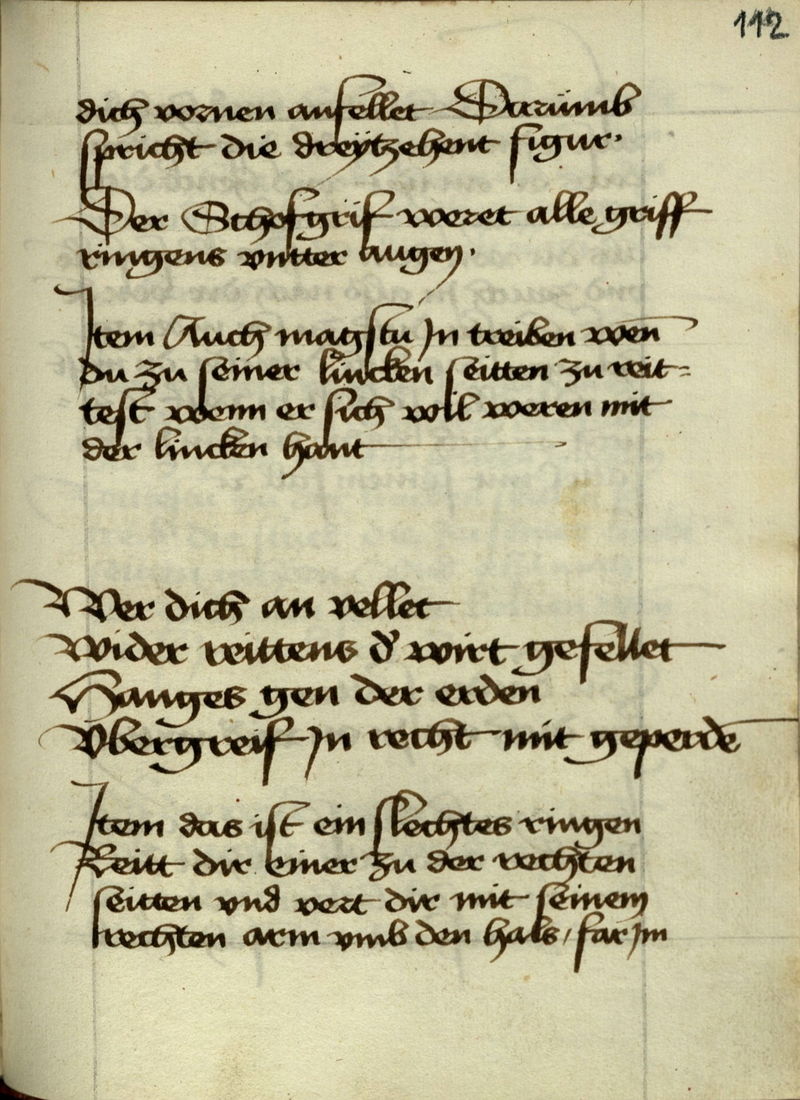 112
dich vornen anfellet Darumb
spricht die dreytzehent figur.
Der Schofgrif weret alle griff
ringens vntter augen.
Item Auch magstu Jn treiben wen̄
du zu seiner lincken seitten zu reit=
test wenn er sich wil weren mit
der lincken hant
Wer dich an vellet
Wider reittens d' wirt gefellet
Hanges gen der erden
Vbergreif Jn recht mit geperdē
Item das ist ein slechtes ringen
Reitt dir einer zu der rechten
seitten vnd vert dir mit seinem
rechten arm vmb den hals / far Jm